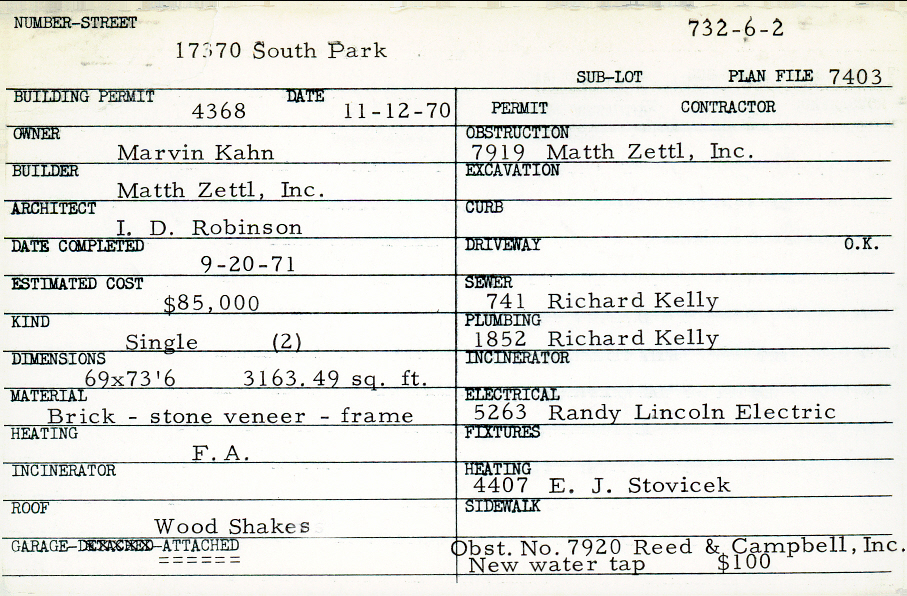 NUMBER-STREET
732-6-2
17370 South Park
SUB-LOT PLAN FILE 7403
BUILDING PERMIT 4368 DATE 11-12-70
PERMIT CONTRACTOR
OWNER Marvin Kahn
OBSTRUCTION 7919 Matth Zettl, Inc.
BUILDER Matth Zettl, Inc.
EXCAVATION
ARCHITECT I. D. Robinson
CURB
DATE COMPLETED 9-20-71
DRIVEWAY O.K.
ESTIMATED COST $85,000
SEWER 741 Richard Kelly
KIND Single (2)
PLUMBING 1852 Richard Kelly
DIMENSIONS 69x73'6 3163.49 sq. ft.
INCINERATOR
MATERIAL Brick - stone veneer - frame
ELECTRICAL 5263 Randy Lincoln Electric
HEATING F.A.
FIXTURES
INCINERATOR
HEATING 4407 E. J. Stovicek
ROOF Wood Shakes
SIDEWALK
GARAGE-DETACHED-ATTACHED
Obst. No. 7920 Reed & Campbell, Inc.
New water tap $100